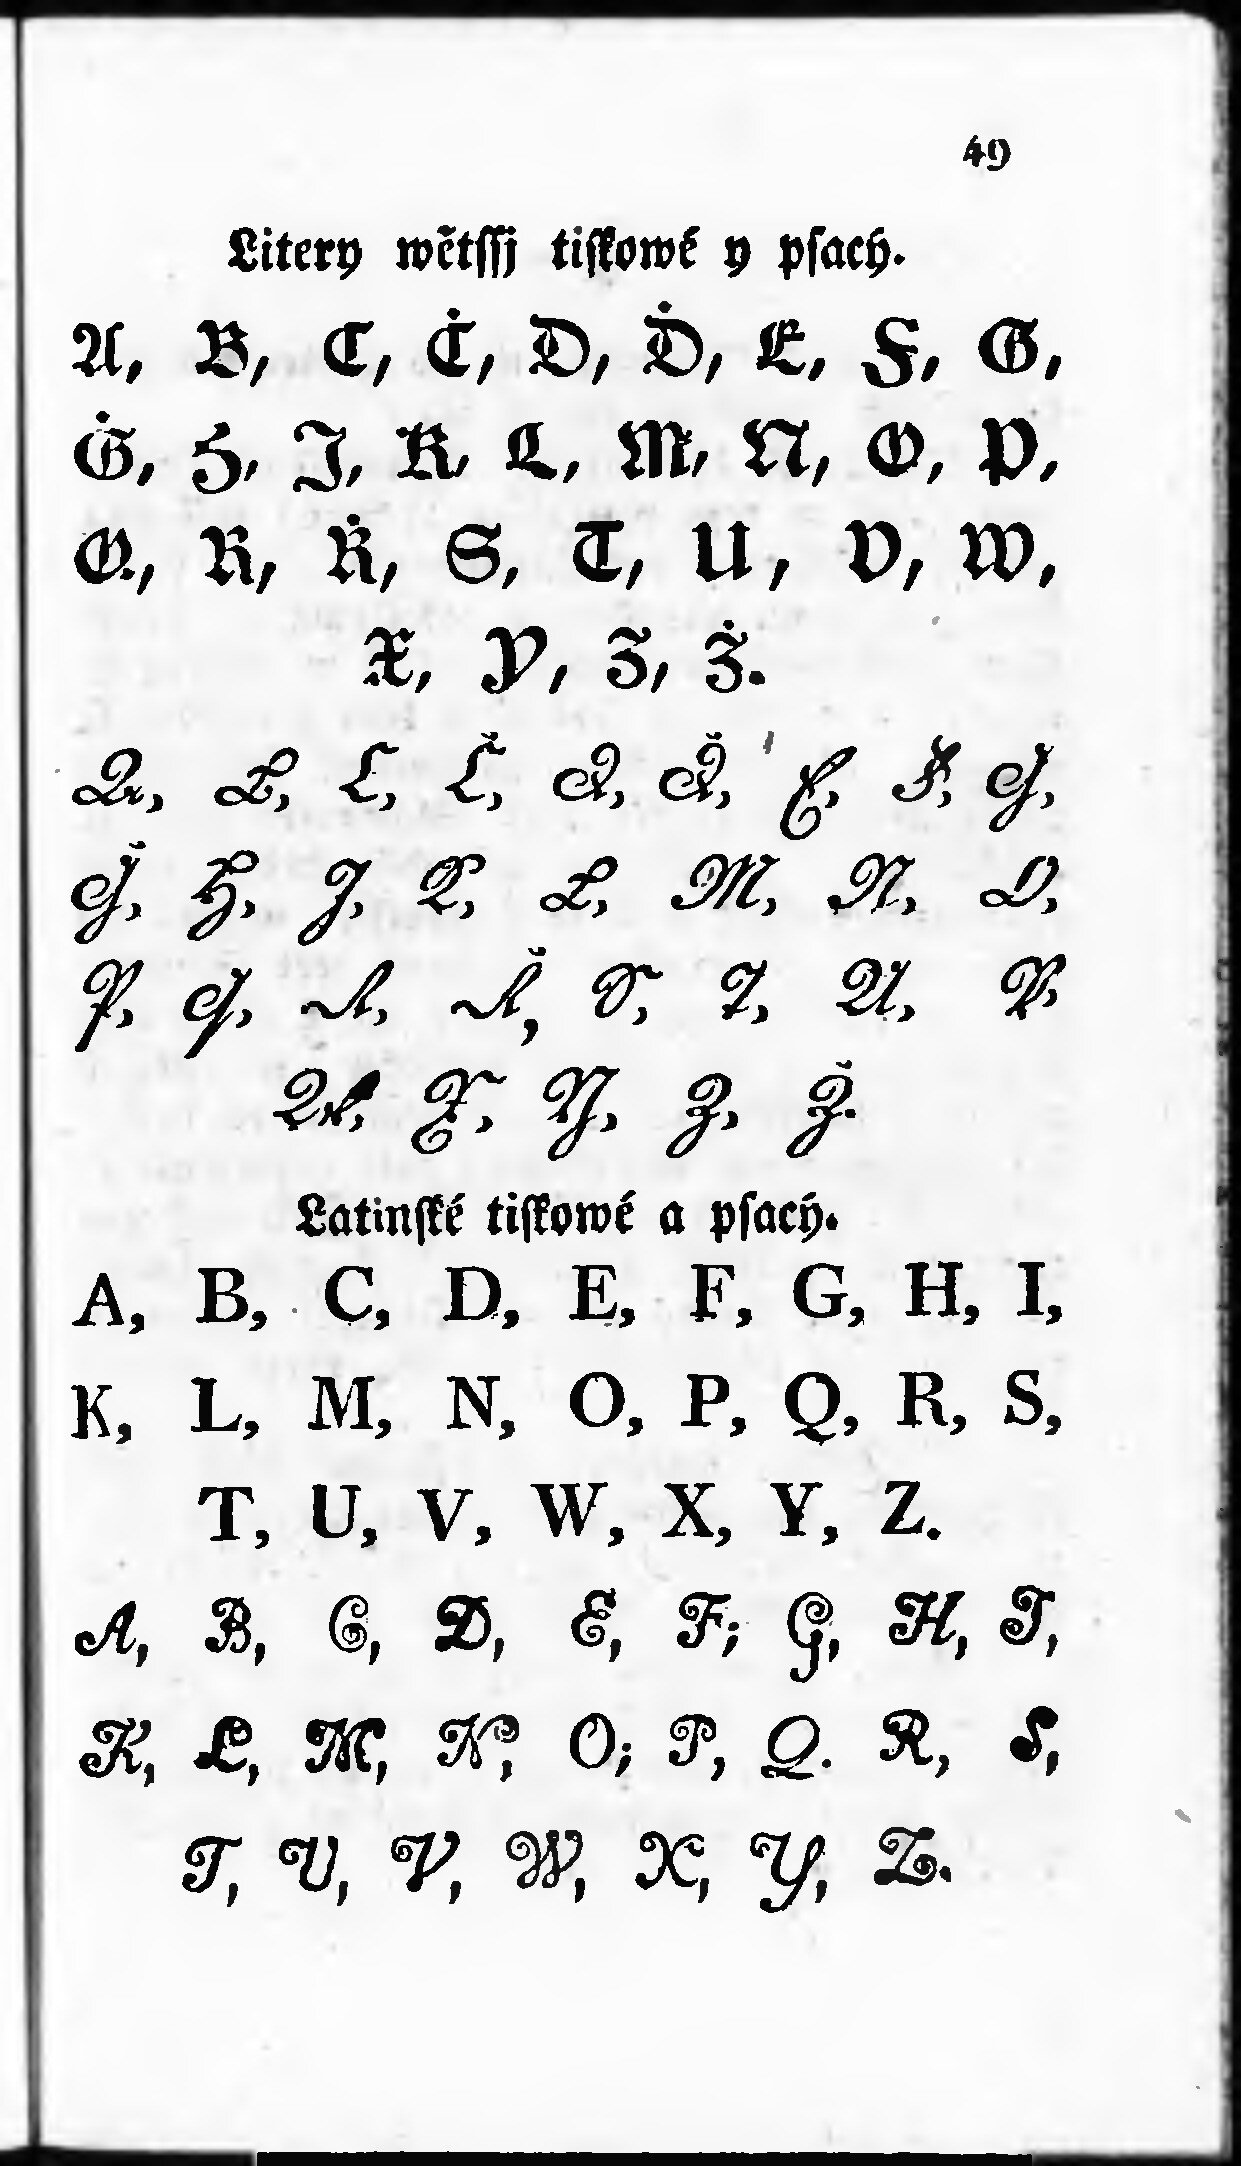 49
Litery wětſſj tiſkowé y pſacý.
A, B, C, Ċ, D, Ḋ, E, F, G,
Ġ, H, J, K, L, M, N, O, P,
Q, R, Ṙ, S, T, U, V, W,
X, Y, Z, Ż.
A, B, C, Č, D, Ď, E, F, G,
Ǧ, H, J, K, L, M, N, O,
P, Q, R, Ř, S, T, U, V
W, X, Y, Z, Ž.
Latinſké tiſkowé a pſacý.
A, B, C, D, E, F, G, H, I,
K, L, M, N, O, P, Q, R, S,
T, U, V, W, X, Y, Z.
A, B, C, D, E, F; G, H, I,
K, L, M, N, O; P, Q. R, S,
T, U, V, W, X, Y, Z.